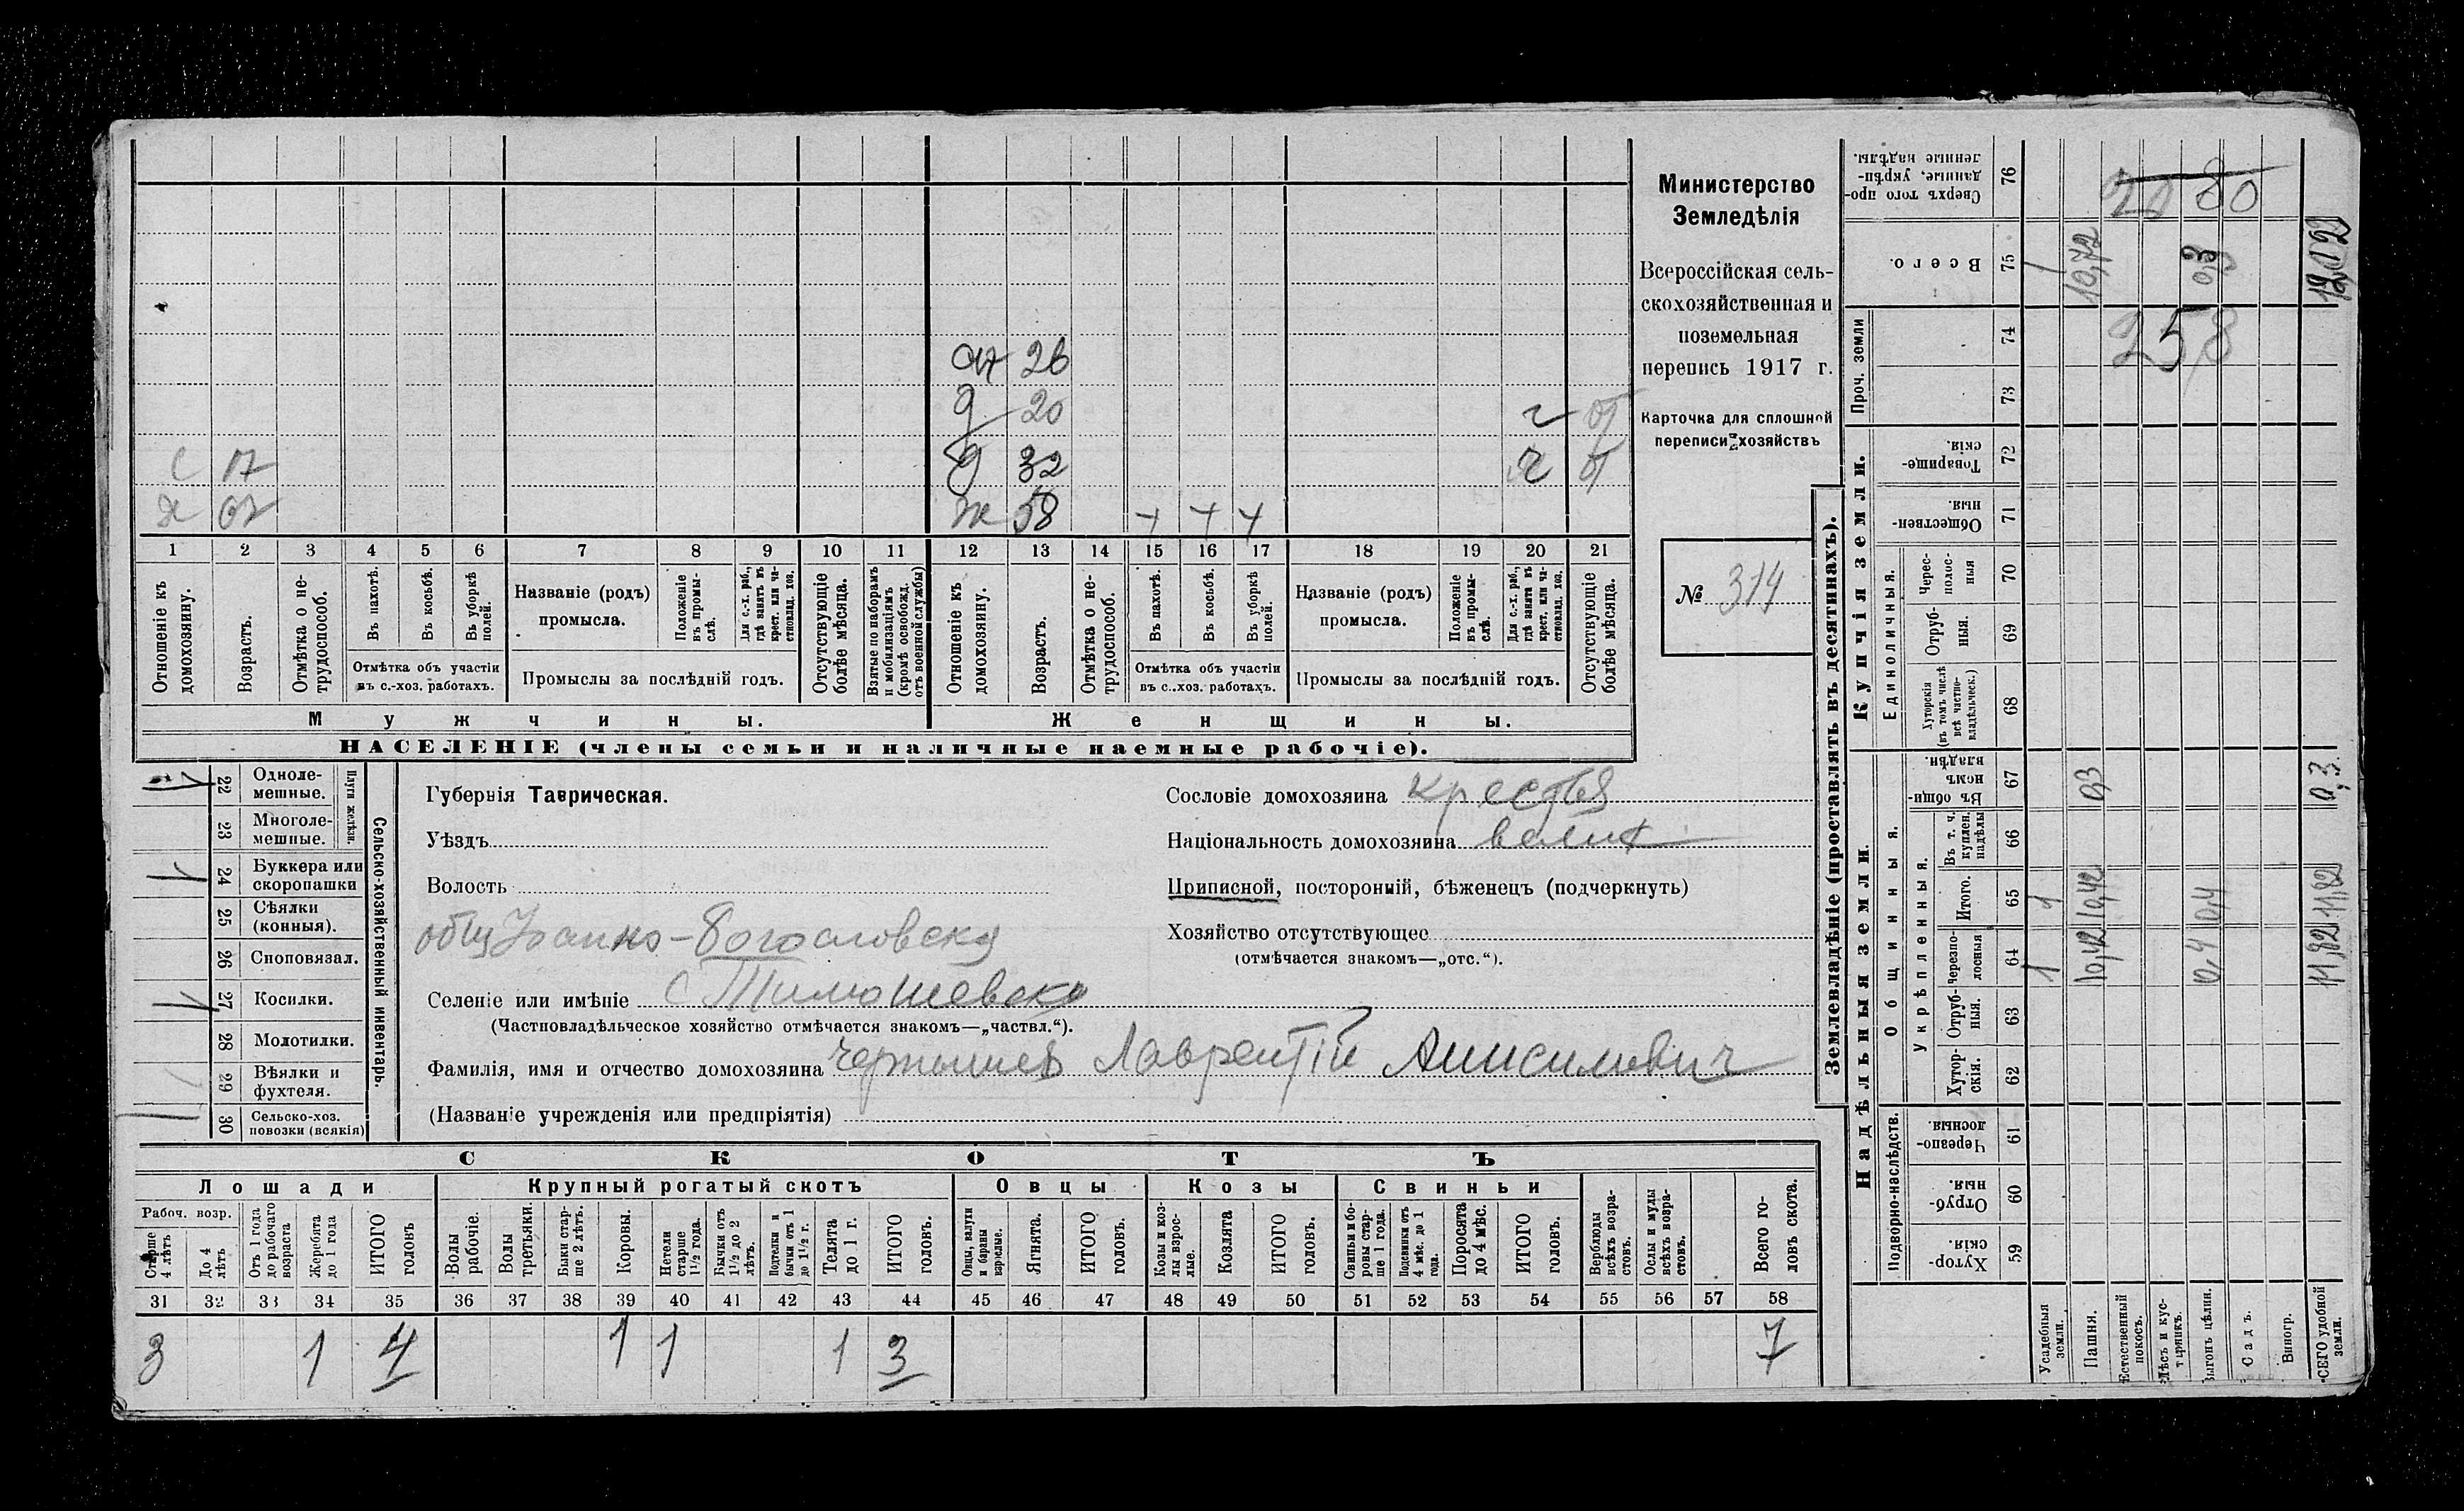 с 17
х 62
м 26
д 20 ч от
д 32 ч от
ж 58 + + +
1 2 3 4 5 6 7 8 9 10 11 12 13 14 15 16 17 18 19 20 21
Отношеніе къ домохозяину.
Возрастъ.
Отмѣтка о не-трудоспособ.
Въ пахотѣ.
Въ косьбѣ.
Въ уборкѣ полей.
Отмѣтка объ участіи
въ с.-хоз. работахъ.
Названіе (родъ)
промысла.
Положеніе въ промы-слѣ.
Для с.-х. раб., гдѣ занятъ въ крест. или ча-стновлад. хоз.
Промыслы за послѣдній годъ.
Отсутствующіе болѣе мѣсяца.
Взятые по наборамъ и мобилизаціямъ (кромѣ освобожд. отъ военной службы)
Отношеніе къ домохозяину.
Возрастъ.
Отмѣтка о не-трудоспособ.
Въ пахотѣ.
Въ косьбѣ.
Въ уборкѣ полей.
Отмѣтка объ участіи
въ с.-хоз. работахъ.
Названіе (родъ)
промысла.
Положеніе въ промы-слѣ.
Для с.-х. раб., гдѣ занята въ крест. или ча-стновлад. хоз.
Промыслы за послѣдній годъ.
Отсутствующіе болѣе мѣсяца.
Мужчины.
Женщины.
НАСЕЛЕНІЕ (члены семьи и наличные наемные рабочіе).
Министерство
Земледѣлія
Всероссійская сель-
скохозяйственная и
поземельная
перепись 1917 г.
Карточка для сплошной
переписи хозяйствъ
№ 314
22 Одноле-мешные.
23 Многоле-мешные.
Плуги желѣзн.
24 Буккера или скоропашки
25 Сѣялки (конныя).
26 Сноповязал.
27 Косилки.
28 Молотилки.
29 Вѣялки и фухтеля.
30 Сельско-хоз. повозки (всякія)
Сельско-хозяйственный инвентарь.
Губернія Таврическая.
Уѣздъ
Волость
общ Іоанно-Богословску
Селеніе или имѣніе с Тимошевска
(Частновладѣльческое хозяйство отмѣчается знакомъ—„частвл.“).
Фамилія, имя и отчество домохозяина Чернышев Лаврентій Анисимович
(Названіе учрежденія или предпріятія)
Сословіе домохозяина крестья
Національность домохозяина велик
Приписной, посторонній, бѣженецъ (подчеркнуть)
Хозяйство отсутствующее
(отмѣчается знакомъ—„отс.“).
СКОТЪ
Лошади
Крупный рогатый скотъ
Овцы
Козы
Свиньи
Рабоч. возр.
Старше 4 лѣтъ
До 4 лѣтъ
Отъ 1 года до рабочаго возраста
Жеребята до 1 года
ИТОГО головъ
Волы рабочіе.
Волы третьяки.
Быки стар-ше 2 лѣтъ.
Коровы.
Нетели старше 1 1/2 года.
Бычки отъ 1 1/2 до 2 лѣтъ.
Подтелки и бычки отъ 1 до 1 1/2 г.
Телята до 1 г.
ИТОГО головъ.
Овцы, валухи и бараны взрослые.
Ягнята.
ИТОГО головъ.
Козы и коз-лы взрос-лые.
Козлята
ИТОГО головъ.
Свиньи и бо-ровы стар-ше 1 года.
Подсвинки отъ 4 мѣс. до 1 года.
Поросята до 4 мѣс.
ИТОГО головъ.
Верблюды всѣхъ возра-стовъ.
Ослы и мулы всѣхъ возра-стовъ.
Всего го-ловъ скота.
31 32 33 34 35 36 37 38 39 40 41 42 43 44 45 46 47 48 49 50 51 52 53 54 55 56 57 58
3 1 4 1 1 1 3 7
Землевладѣніе (проставлять въ десятинахъ).
Надѣльныя земли.
Купчія земли.
Проч. земли
Подворно-наслѣдств.
Общинныя.
Укрѣпленныя.
Единоличныя.
Сверхъ того про-данные, укрѣп-ленные надѣлы. 76 20 80
Всего. 75 1 10,72 0,3 12,02
74 258
73
Товарище-скія. 72
Обществен-ныя. 71
Черес-полос-ныя 70
Отруб-ныя. 69
Хуторскія (въ томъ числѣ всѣ частно-владѣльческ.) 68
Въ общин-номъ владѣн. 67 0,3 0,3
Въ т. ч. куплен. надѣлы 66
Итого. 65 1 10,42 0,4 11,82
Черезпо-лосныя 64 1 10,42 0,4 11,82
Отруб-ныя. 63
Хутор-скія. 62
Черезпо-лосныя 61
Отруб-ныя. 60
Хутор-скія. 59
Усадебныя земли.
Пашня.
Естественный покосъ.
Лѣсъ и кус-тарникъ.
Выгонъ цѣлин.
Садъ.
Виногр.
ВСЕГО удобной земли.